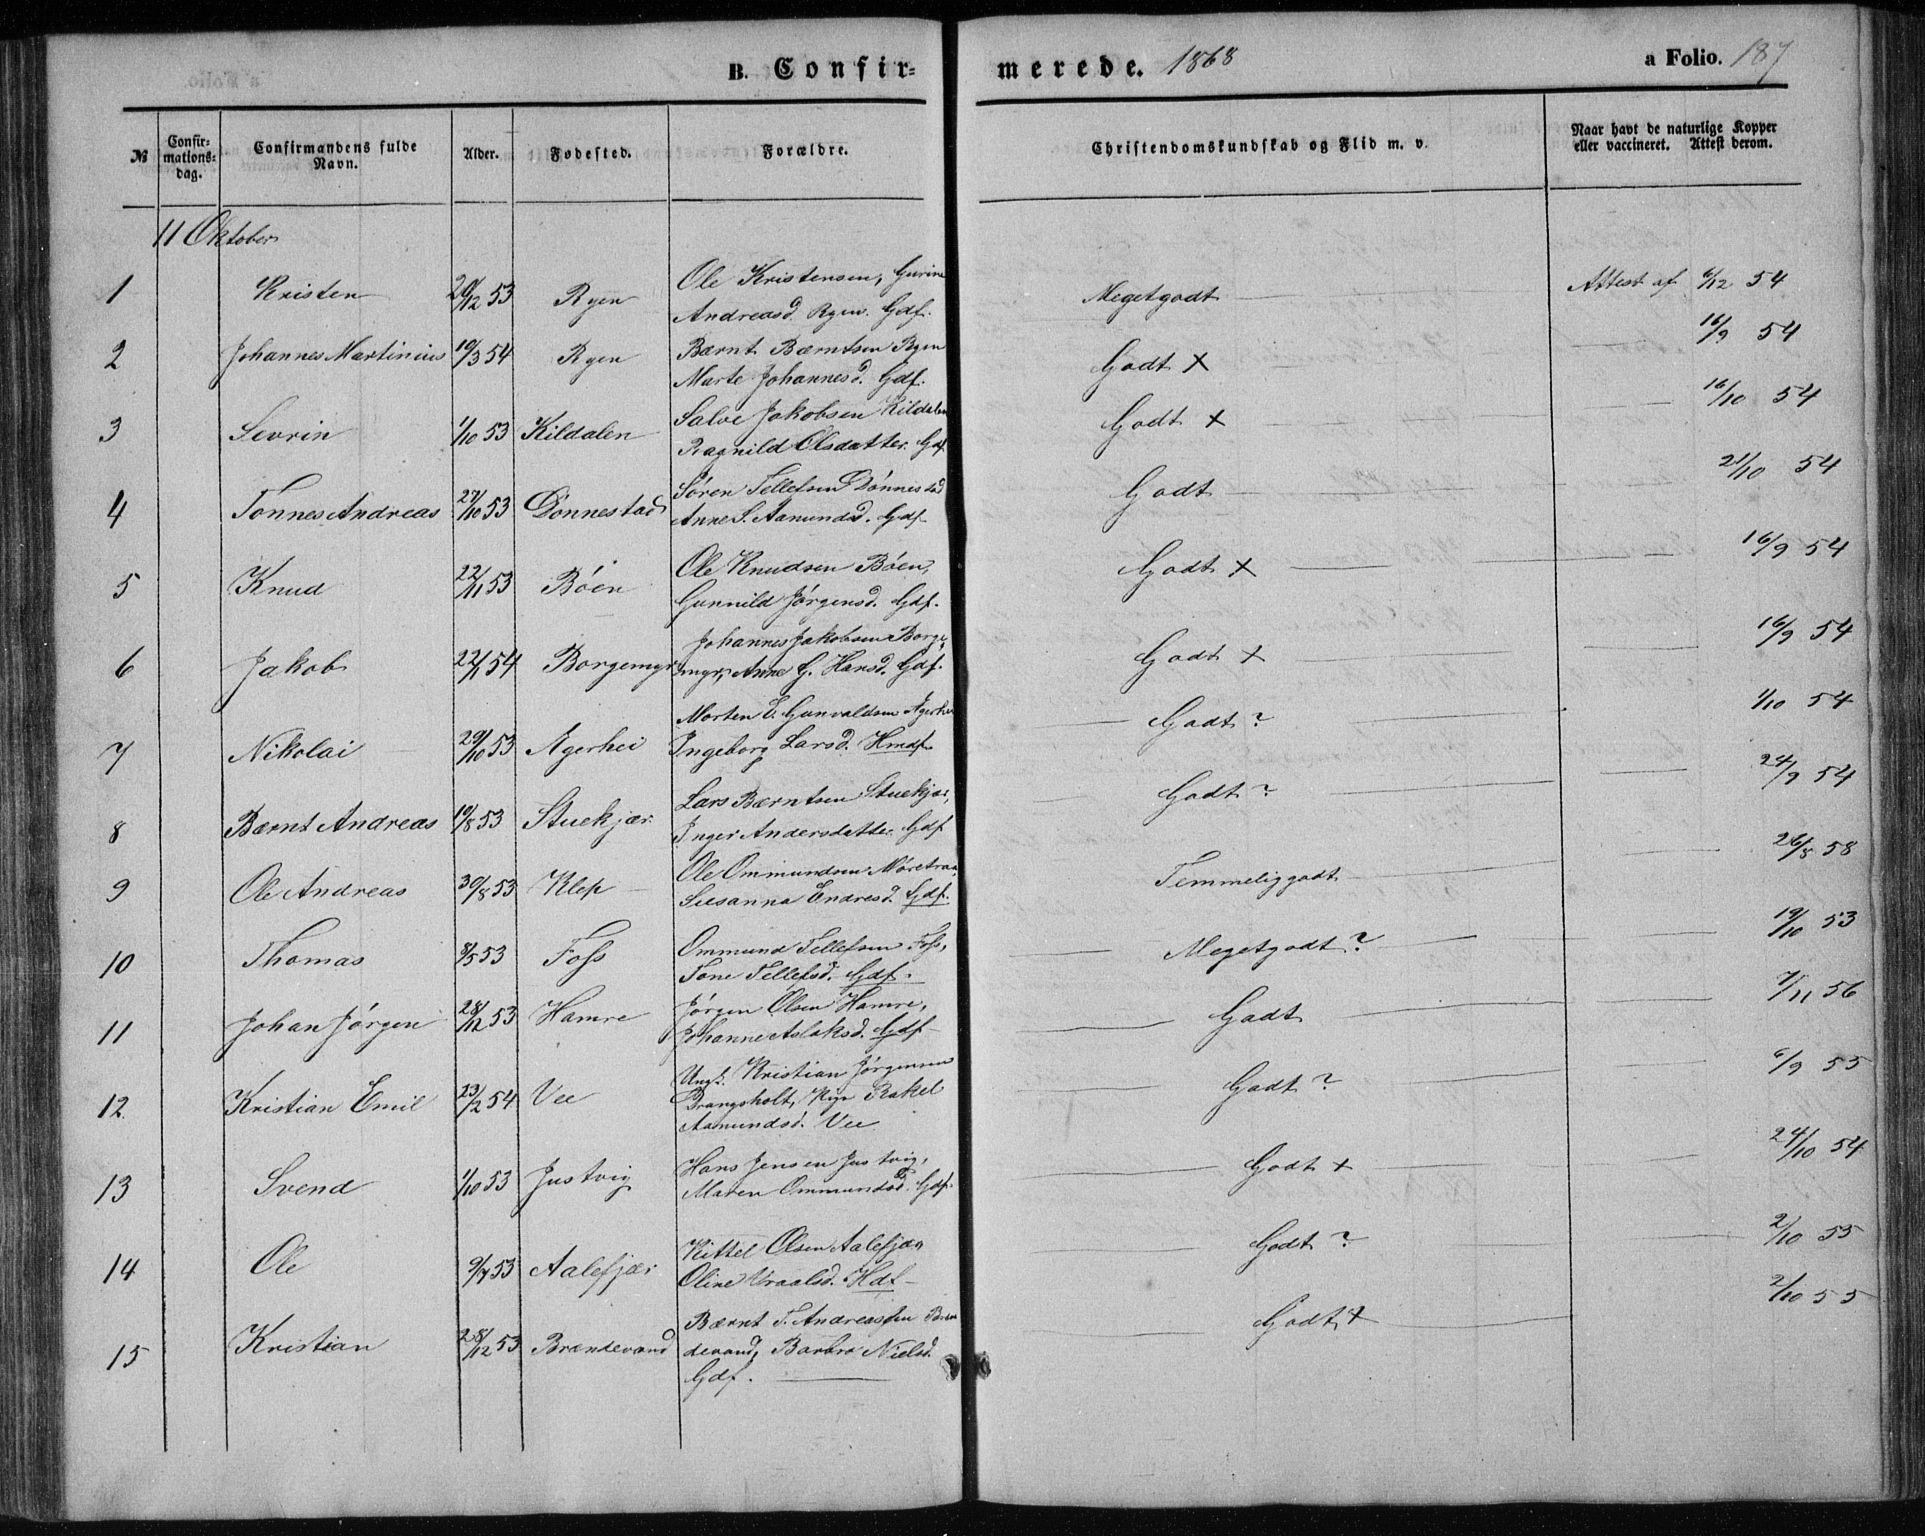 B. Confirmerede. 1868 a Folio. 187
№ Confirmations-dag. Confirmandens fulde Navn. Alder. Fodested. Forældre. Christendomskundskab og Flid m. v. Naar havt de naturlige Kopper eller vaccineret. Attest derom.
11 Oktober
1 Kristen 20/12 53 Ryen Ole Kristensen, Gurine Megetgodt Attest af 6/12 54
Andreasd. Ryen. Gdf.
2 Johannes Martinius 10/3 54 Ryen Bærnt Bærntsen Ryen Godt × 16/9 54
Marte Johannesd. Gdf.
3 Sevrin 1/10 53 Kildalen Salve Jakobsen Kildalen Godt × 16/10 54
Ragnild Olsdatter. Gdf.
4 Tønnes Andreas 27/10 53 Dønnestad Søren Tellefsen Dønnestad Godt 21/10 54
Anne S. Aamundsd. Gdf.
5 Knud 22/11 53 Bøen Ole Knudsen Bøen, Godt × 16/9 54
Gunnild Jørgensd. Gdf.
6 Jakob 22/1 54 Borgemyr Johannes Jakobsen Borge- Godt × 16/9 54
myr, Anne G. Hansd. Gdf.
7 Nikolai 29/10 53 Agerhei Morten E. Gunvaldsen Agerhei Godt ? 1/10 54
Ingeborg Larsd. Hmdf.
8 Bærnt Andreas 10/8 53 Stuekjær Lars Bærntsen Stuekjær, Godt ? 24/9 54
Inger Andersdatter. Gdf
9 Ole Andreas 30/8 53 Klep Ole Ommundsen Møretraa, Temmeliggodt 26/8 58
Susanna Endresd. Gdf.
10 Thomas 8/5 53 Foss Ommund Tellefsen Foss, Megetgodt ? 19/10 53
Tone Tellefsd. Gdf.
11 Johan Jørgen 28/12 53 Hamre Jørgen Olsen Hamre, Godt 7/11 56
Johanne Aslaksd. Gdf
12 Kristian Emil 23/2 54 Vee Ungk. Kristian Jørgensen Godt ? 6/9 55
Drangsholt, Pige Rakel
Aamundsd. Vee
13 Svend 1/10 53 Justvig Hans Jensen Justvig, Godt + 24/10 54
Maren Ommundsd. Gdf.
14 Ole 9/7 53 Aalefjær Kittel Olsen Aalefjær Godt ? 2/10 55
Oline Vraalsd. Hdf
15 Kristian 28/12 53 Brændevand Bærnt T. Andreassen Bræn- Godt × 2/10 55
devand, Barbro Nielsd.
Gdf.